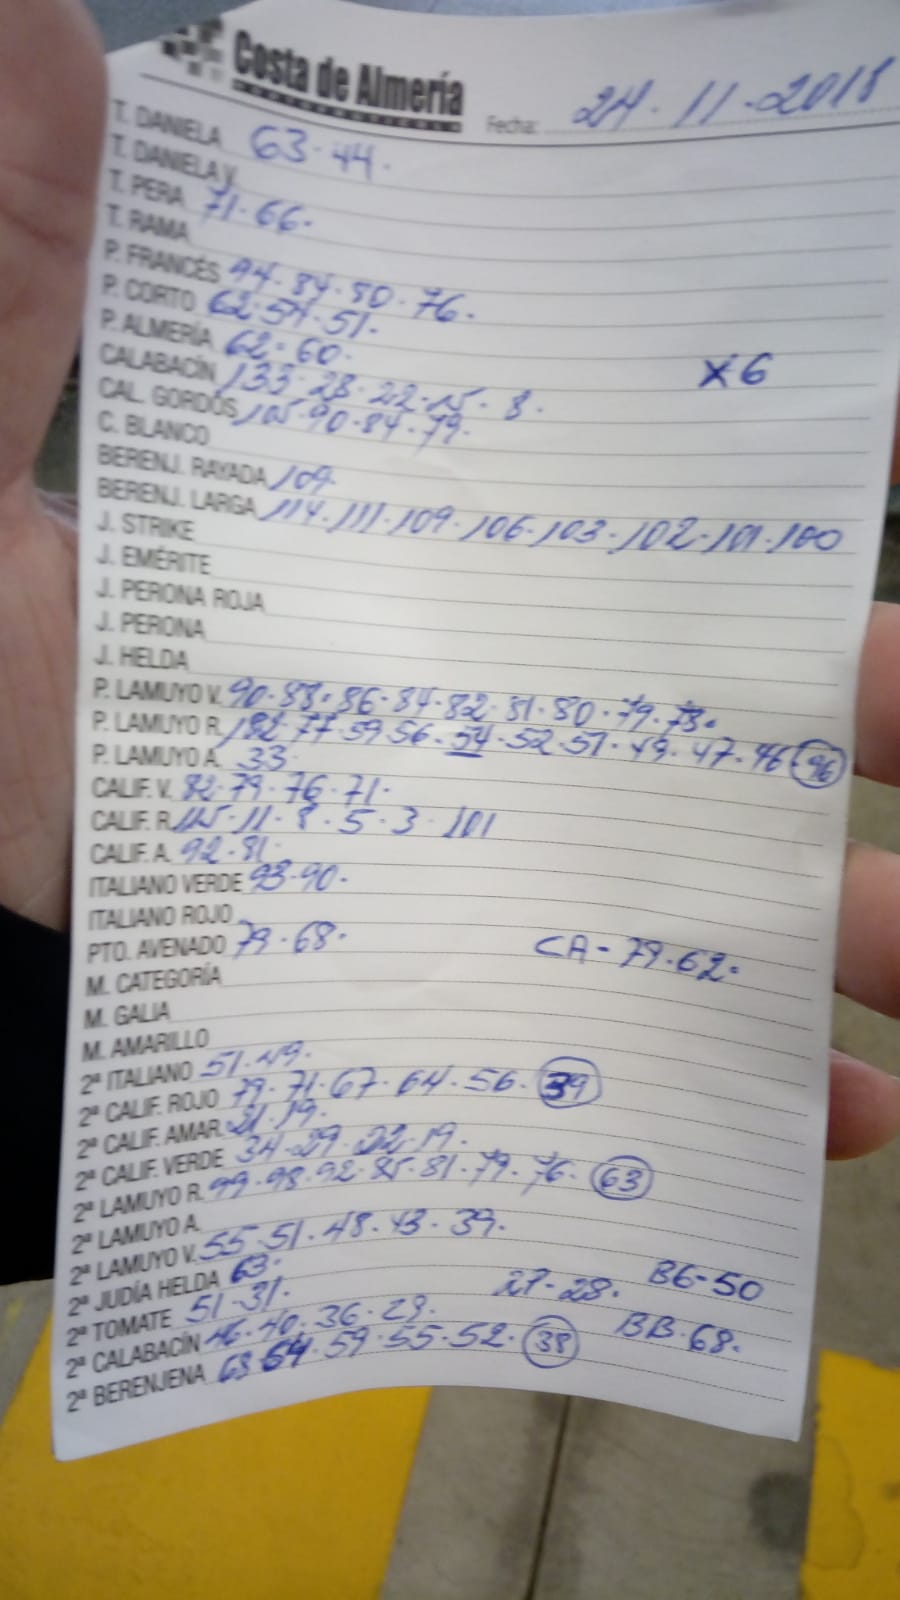 Costa de Almería
Fecha: 24-11-2018
T. DANIELA 63.44.
T. DANELA V.
T. PERA 71.66.
T. RAMA
P. FRANCÉS 94.84.80.76.
P. CORTO 62.54.51.
P. ALMERÍA 62.60.
CALABACÍN 133.28.22.15.8. X6
CAL. GORDOS 105.90.84.79.
C. BLANCO
BERENJ. RAYADA 109.
BERENJ. LARGA 114.111.109.106.103.102.101.100
J. STRIKE
J. EMÉRITE
J. PERONA ROJA
J. PERONA
J. HELDA
P. LAMUYO V. 90.88.86.84.82.81.80.79.78.
P. LAMUYO R. 182.77.59.56.54.52.51.49.47.46 96
P. LAMUYO A. 33.
CALIF. V. 82.79.76.71.
CALIF. R. 115.11.8.5.3.101
CALIF. A. 92.81.
ITALIANO VERDE 93.90.
ITALIANO ROJO
PTO. AVENADO 79.68. CA-79.62.
M. CATEGORÍA
M. GALIA
M. AMARILLO
2ª ITALIANO 51.49.
2ª CALIF. ROJO 79.71.67.64.56. 39
2ª CALIF. AMAR. 21.19.
2ª CALIF. VERDE 34.29.22.19.
2ª LAMUYO R. 99.98.92.85.81.79.76. 63
2ª LAMUYO A.
2ª LAMUYO V. 55.51.48.43.39.
2ª JUDÍA HELDA 63. 27-28. BG-50
2ª TOMATE 51.31.
2ª CALABACÍN 46.40.36.29. BB.68.
2ª BERENJENA 68.64.59.55.52. 38